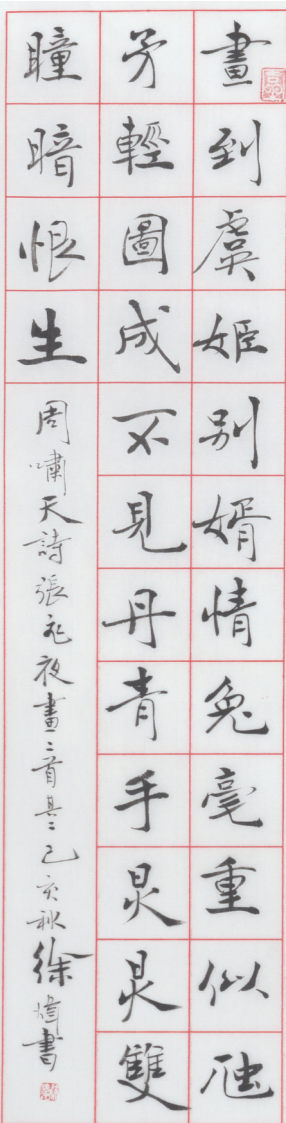 畫到虞姬別婿情兔毫重似虵
矛輕圖成不見丹青手炅炅雙
瞳暗恨生
周嘯天詩張飛夜畫二首其二己亥秋徐煒書